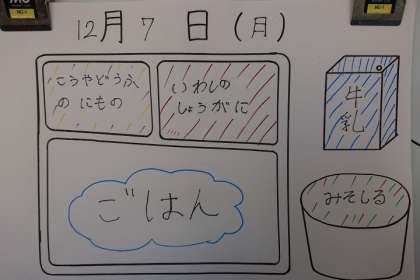 12月7日(月)
こうやどうふ
のにもの
いわしの
しょうがに
牛乳
ごはん
みそしる